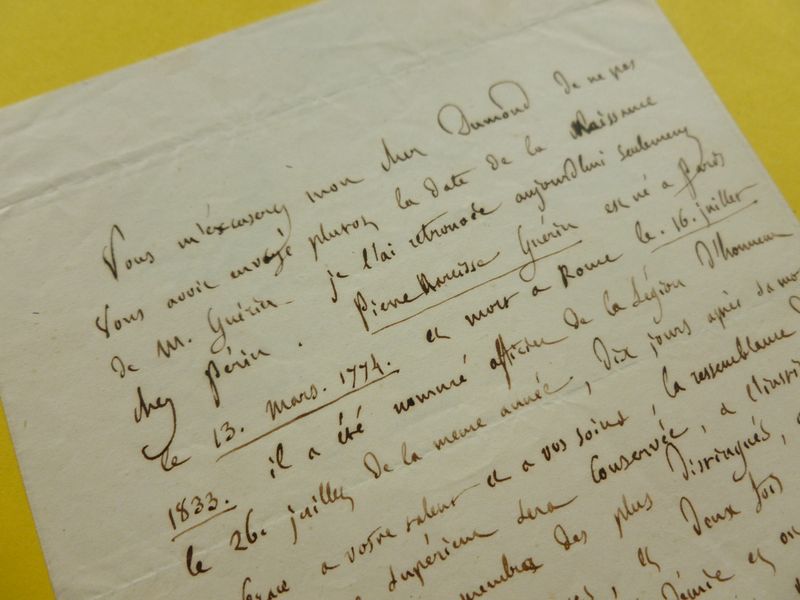 Vous m'excuserez mon cher Dumond de ne pas
vous avoir envoyé plutot la date de la Naissance
de M. Guérin. je l'ai retrouvée aujourdhui seulement
chez Périn. Pierre Narcisse Guérin est né a Paris
le 13. Mars. 1774. et mort a Rome le. 16. juillet
1833. il a été nommé officier de la Légion D'honneur
le 26. juillet de la meme année, dix jours après sa mort
Grace a votre talent et a vos soins, la ressemblance
supérieur sera Conservée, a l'insti
membre des plus Distingués,
et Deux fois
et on